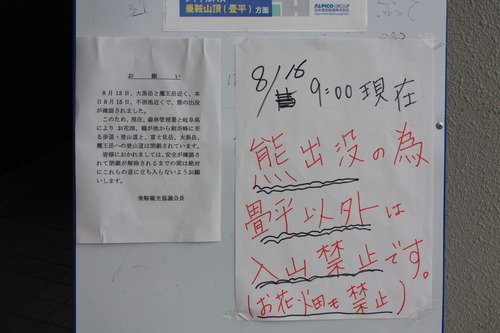 乗鞍山頂(畳平) 方面
ALPICO GROUP
お 願 い
8月13日、大黒岳と魔王岳近く、本
日8月15日、不消池近くで、熊の出没
が確認されました。
このため、現在、森林管理署と岐阜県
により お花畑、鶴が池から剣が峰に至
る歩道・登山道と、富士見岳、大黒岳、
魔王岳への登山道は閉鎖されています。
皆様におかれましては、安全が確認され
て閉鎖が解除されるまでの間は絶対
にこれらの道に立ち入らないようお願
いします。
乗鞍観光協議会長
8/16
9:00 現在
熊出没の為
畳平以外は
入山禁止です。
(お花畑も禁止)